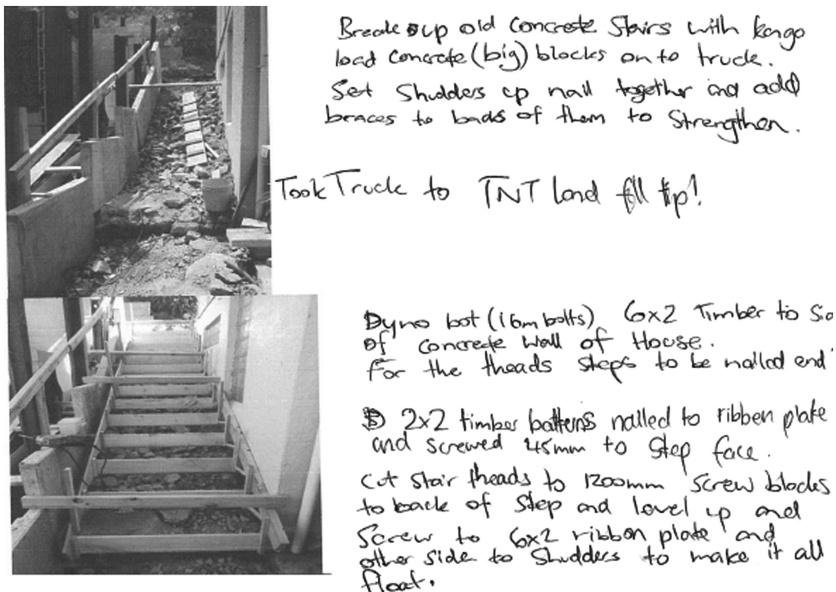 Break up old concrete Stairs with kango
load concrete (big) blocks on to truck.
Set Shudders up nail together and add
braces to backs of them to Strengthen.
Took Truck to TNT land fill tip!
Dyno bot (16m bolts) 6x2 Timber to
of concrete wall of House.
For the theads steps to be nailed end.
2x2 timber battens nailed to ribben plate
and screwed 45mm to Step face.
Cut Stair theads to 1200mm Screw blocks
to back of Step and level up and
Screw to 6x2 ribbon plate and
other side to Shudders to make it all
float.